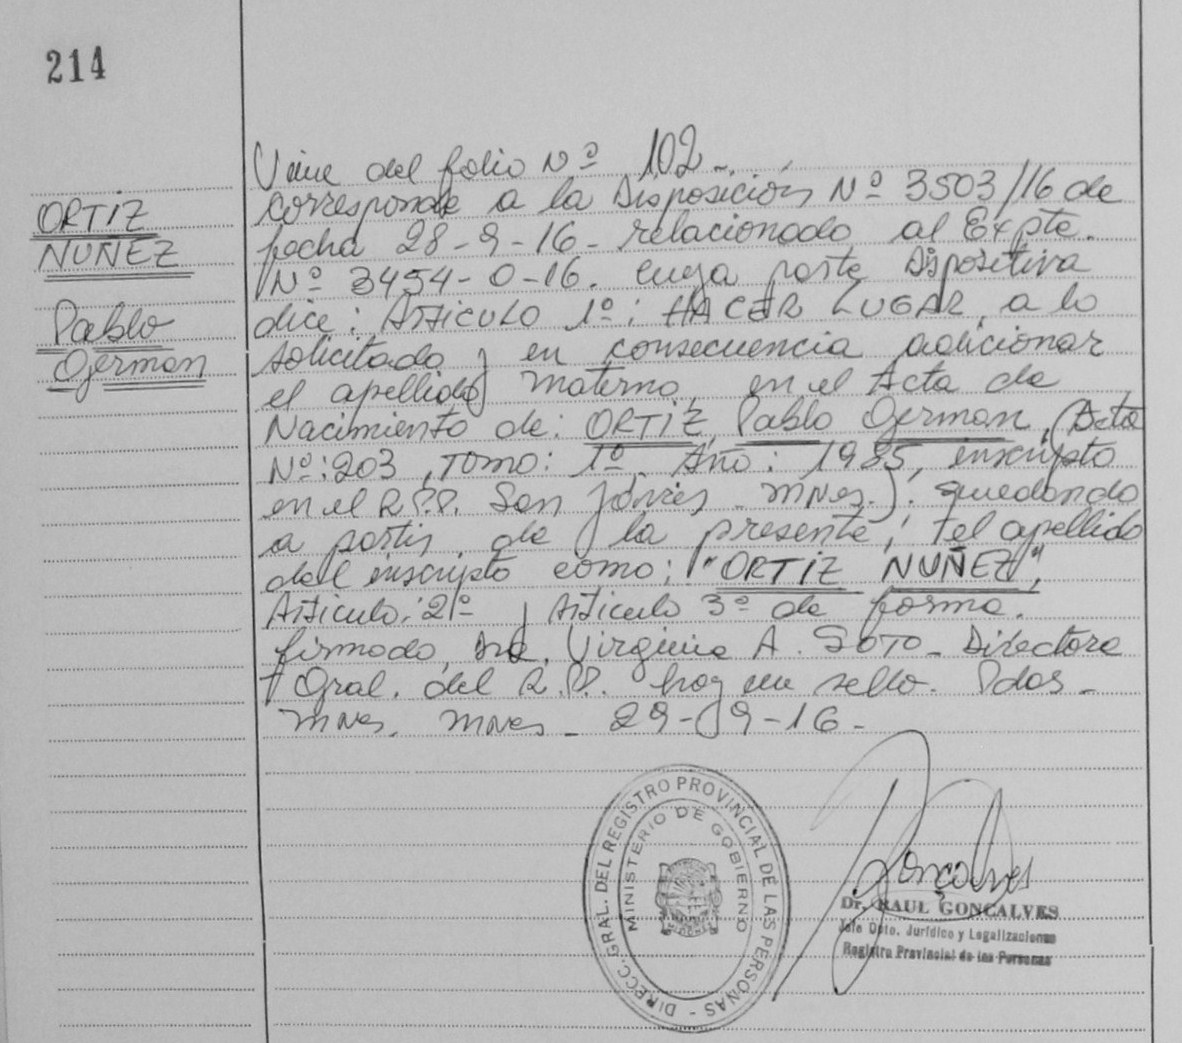 214
ORTIZ
NUÑEZ
Pablo
German
Viene del folio Nº 102-.
corresponde a la Disposición Nº 3503/16 de
fecha 28-9-16- relacionado al Expte.
Nº 3454-O-16. cuya parte Dispositiva
dice: Artículo 1º: HACER LUGAR, a lo
solicitado y en consecuencia adicionar
el apellido materno, en el Acta de
Nacimiento de: ORTIZ, Pablo German, (Acta
Nº: 203, Tomo: 1º, Año: 1985, inscripto
en el R.P.P. San Javier, Mnes.). quedando
a partir de la presente, el apellido
del inscripto como: "ORTIZ NUÑEZ",
Artículo: 2º y Artículo 3º de forma.
firmado, Dra. Virginia A. SOTO- Directora
Gral. del R.P.P. hay un sello. Pdas-
Mnes. Mnes- 29-9-16-
DIRECC. GRAL. DEL REGISTRO PROVINCIAL DE LAS PERSONAS -
MINISTERIO DE GOBIERNO
Goncalves
Dr. RAUL GONCALVES
Jefe Dpto. Jurídico y Legalizaciones
Registro Provincial de las Personas